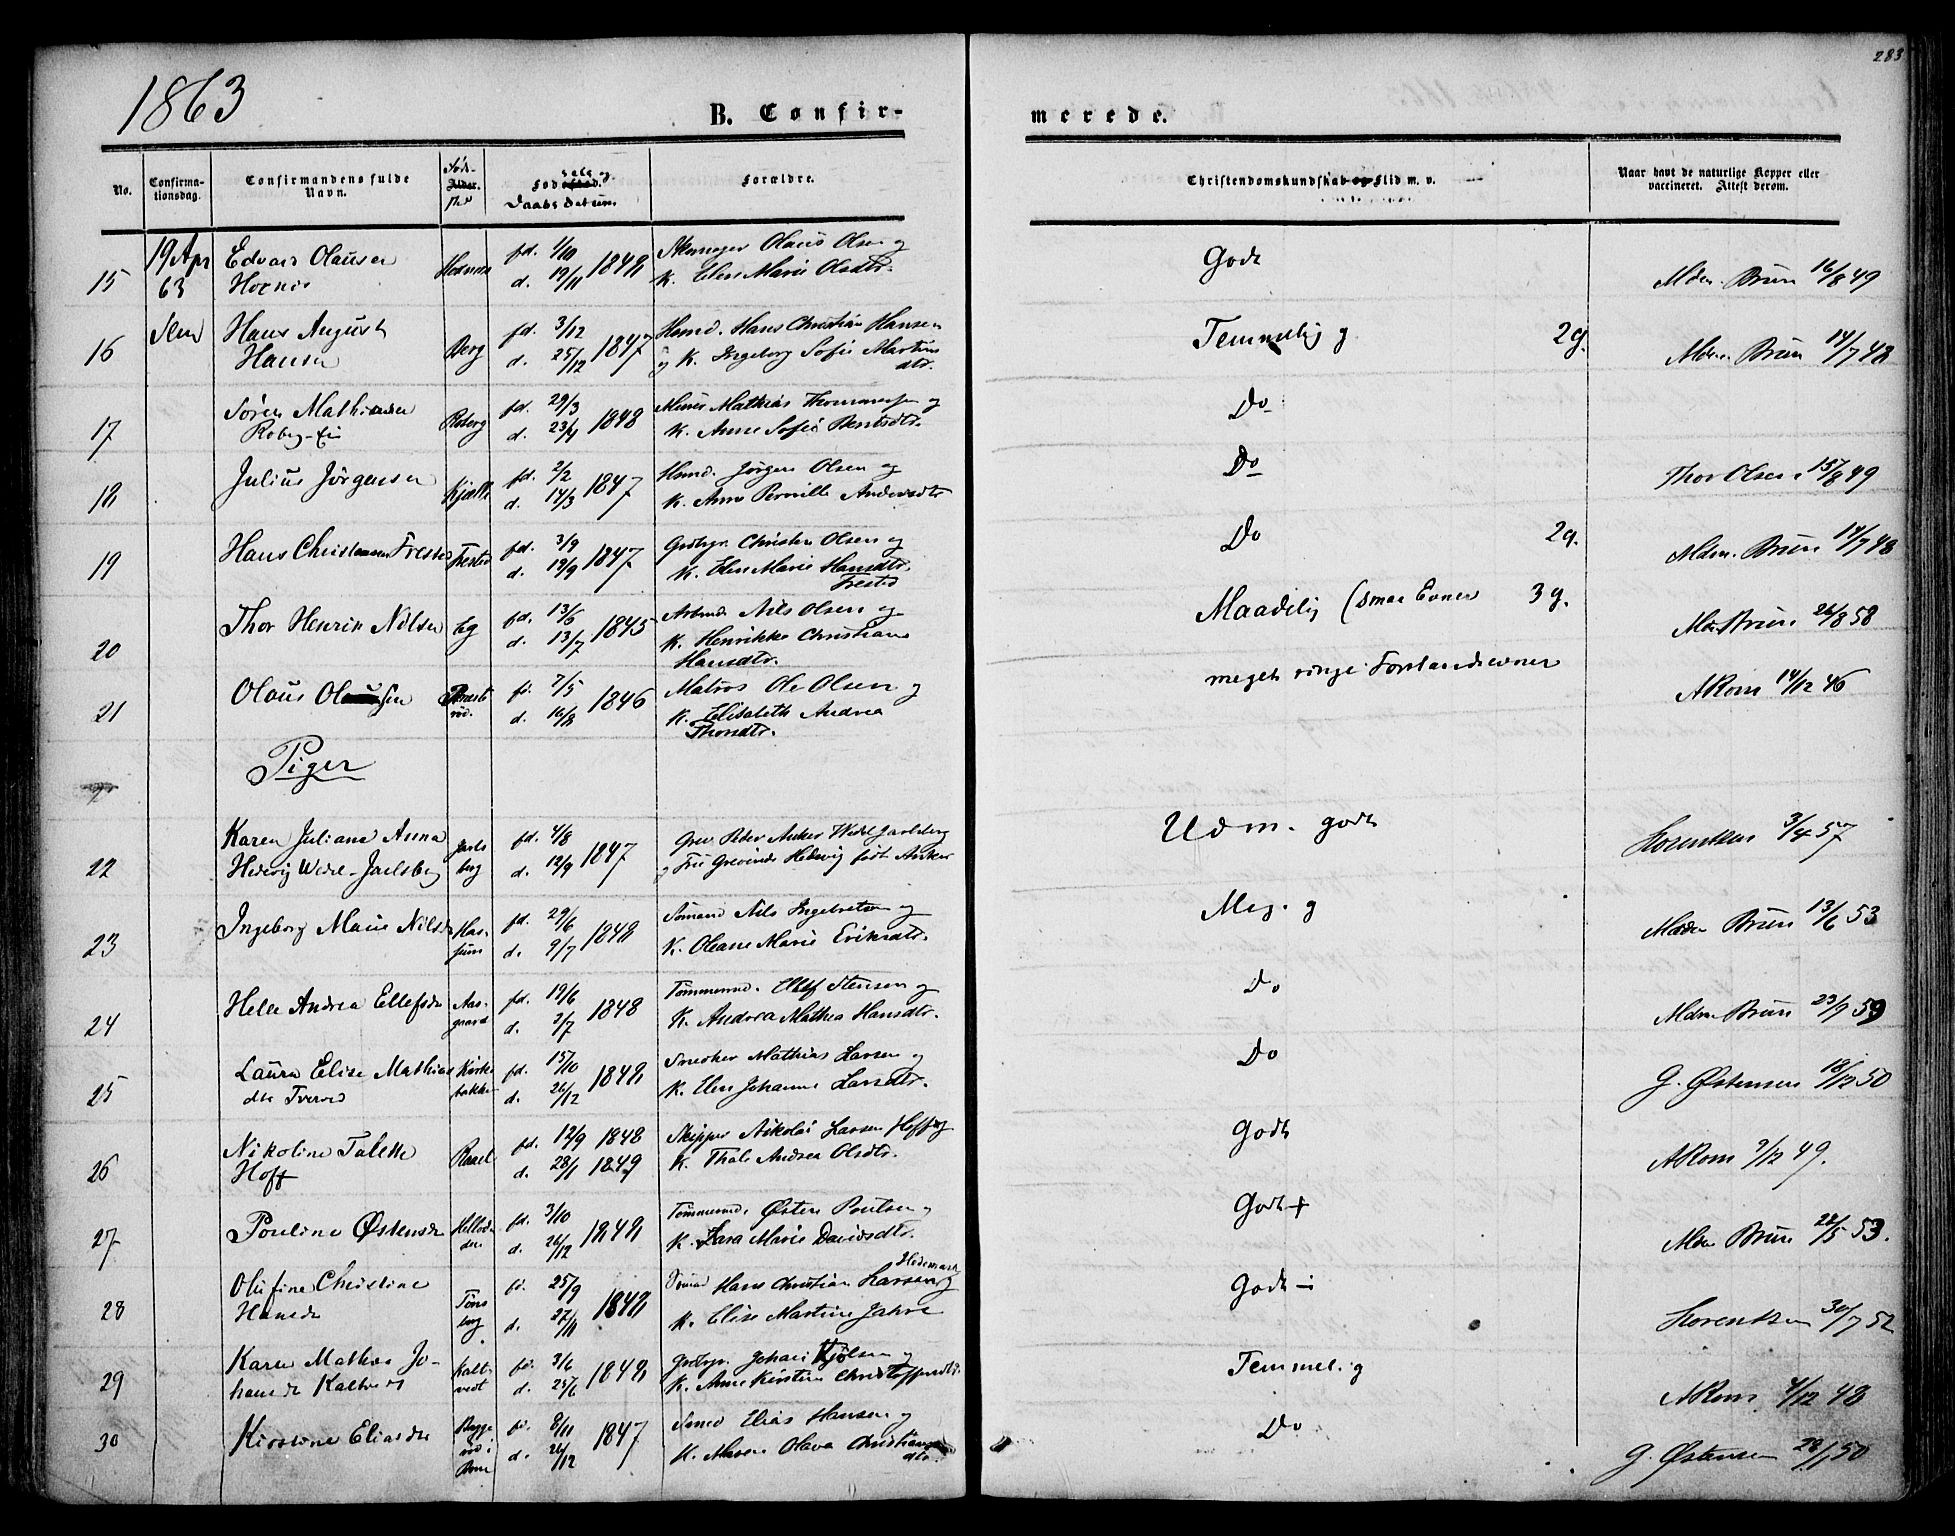 283
1863
B. Confir-
merede.
No.
Confirma-
tionsdag.
Confirmandens fulde
Navn.
Føde-
Alder.
Sted
Fødsels og
Daabs Datum
Forældre.
Christendomskundskab og Flid m. v.
Naar havt de naturlige Kopper eller
vaccineret. Attest derom.
15
19 Apr
63
Edvard Olausen
fd. 1/10
d. 19/11 1848
Olaus Olsen og
K. Elen Marie Olsdtr.
Godt
Mdm. Brun 16/8 49
16
Hans August
Hansen
Berg
fd. 3/12
d. 25/12 1847
Hsmd. Hans Christian Hansen
og K. Ingeborg Sofie Martins
dtr.
Temmelig g 2g.
Mdm. Brun 14/7 48
17
Søren Mathisen
Roberg
fd. 29/3
d. 23/4 1848
Mathias Thommesen og
K. Anne Sofie Berntsdtr.
Do
18
Julius Jørgensen
fd. 2/2
d. 14/3 1847
Hsmd. Jørgen Olsen og
K. Anne Pernille Andersdtr
Do
Thor Olsen 15/8 49
19
Hans Christensen Fresti
fd. 3/9
d. 19/9 1847
Grdbgr. Christen Olsen og
K. Elen Marie Hansdtr.
Do 2g.
Mdm. Brun 14/7 48
20
Thor Henrik Nilsen
Eg
fd. 13/6
d. 13/7 1845
Arbmd. Nils Olsen og
K. Henrikke Christiane
Hansdtr.
Maadelig (smaa Evner 3g.
Mdm Brun 26/8 58
21
Olaus Olsen
fd. 7/5
d. 16/8 1846
Matros Ole Olsen og
K. Elisabeth Andrea
Thorsdtr.
meget ringe Forstandsevner
A Rom 14/12 46
Piger
22
Karen Juliane Anna
Hedevig Wedel-Jarlsberg
Jarls
berg
fd. 4/8
d. 12/9 1847
Grev Peder Anker Wedel Jarlsberg
og Fru Grevinde Hedevig født Anker
Udm. godt
Lorentzen 3/4 57
23
Ingeborg Marie Nilsd
fd. 29/6
d. 9/7 1848
Sømand Nils Ingebretsen og
K. Oleane Marie Eriksdtr.
Meg. g
Mdm Brun 13/6 53
24
Helle Andrea Ellefsdr
Aas-
gaard
fd. 19/6
d. 2/7 1848
Tømmermd. Ellef Stensen og
K. Andrea Mathea Hansdtr.
Do
Mdm Brun 23/9 59
25
Laura Elise Mathias
dtr Tveved
Kirke
bakken
fd. 15/10
d. 26/12 1848
Snedker Mathias Larsen og
K. Elen Johanne Larsdtr.
Do
G. Østensen 18/12 50
26
Nikoline Talette
Hoff
Rael
fd. 12/9 1848
d. 28/1 1849
Skipper Nikolai Larsen Hoff og
K. Thale Andrea Olsdtr.
Godt
A Rom 9/12 49.
27
Pouline Østensdr
fd. 3/10
d. 26/12 1848
Tømmermd. Østen Poulsen og
K. Sara Marie Davidsdtr.
Godt +
Mdm Brun 28/5 53.
28
Olufine Christine
Hansdr
Tøns
berg
fd. 25/9
d. 27/11 1848
Sømand Hans Christian Larsen og
K. Elise Martine Jahre
Godt -
Lorentzen 30/7 52
29
Karen Mathea Jo-
hansdr Kaltvedt
Kalt
vedt
fd. 3/6
d. 25/6 1848
Grdbgr. Johan Kjølsen og
K. Anne Kirstine Christoffersdtr.
Temmel. g
A Rom 4/12 48
30
Kirstine Eliasdtr
fd. 8/11
d. 26/12 1847
Smed Elias Hansen og
K. Maren Olava Christians
dtr.
Do
G. Østensen 28/1 50